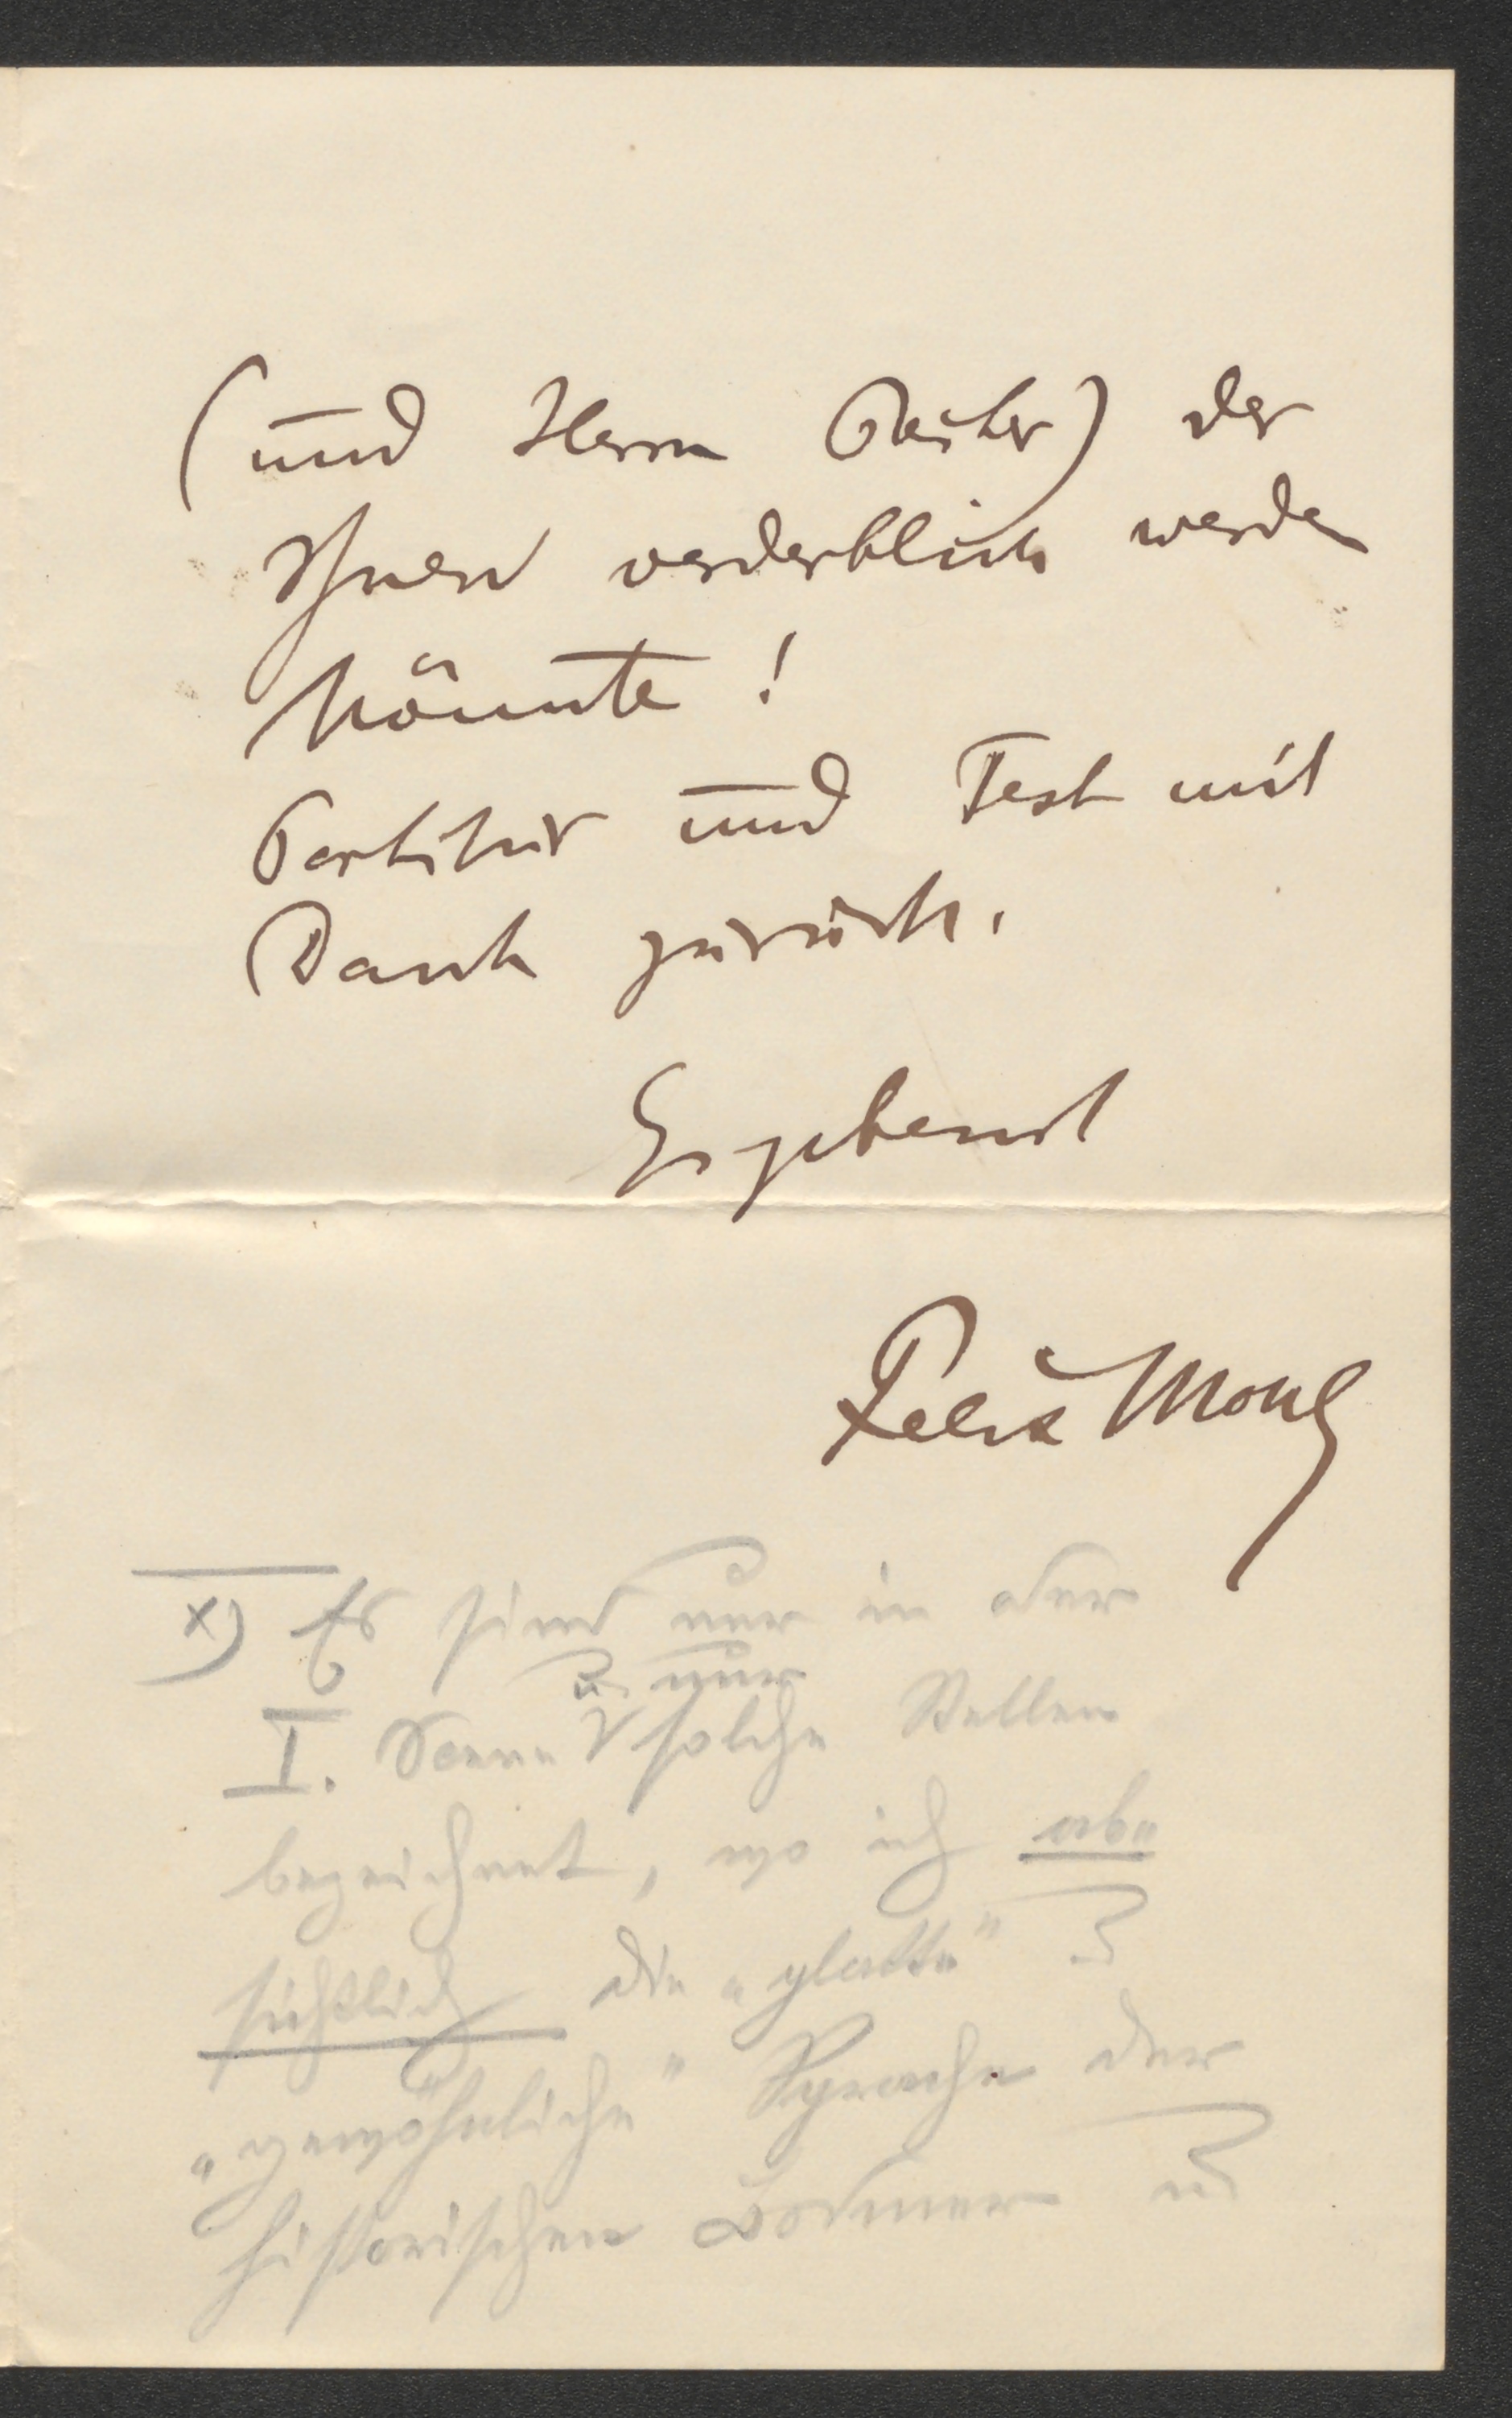 (und Herrn ) der
Ihnen verderblich werden
könnte!
Partitur und Text mit
Dank zurück.
Ergebenst
Felix Mottl
x) Es sind nur in der
u. nur
I. Scene solche Stellen
bezeichnet, wo ich ab„
sichtlich die „glatte" u
„gewöhnliche" Sprache der
historischen u